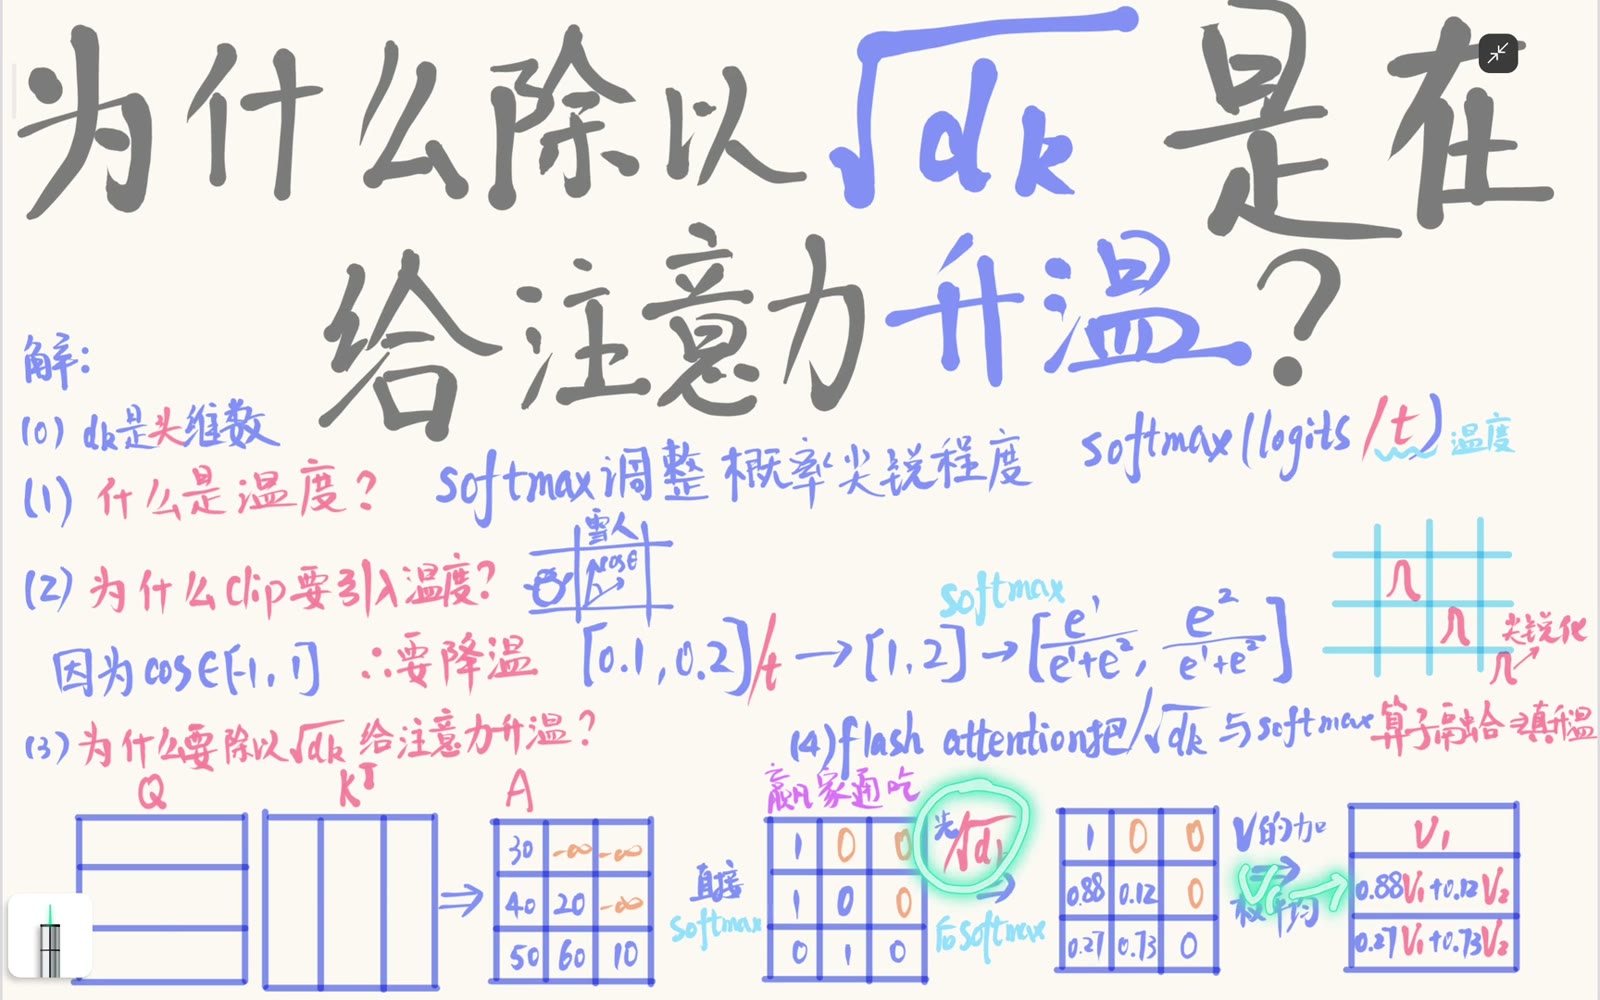 为什么除以√dk 是在
给注意力升温?
解:
(0) dk是头维数
(1) 什么是温度? softmax调整概率尖锐程度 softmax(logits/t) 温度
(2) 为什么Clip要引入温度?
雪人
cosθ
因为cos∈[-1,1] ∴要降温 [0.1,0.2]/t → [1,2] → [e¹/(e¹+e²), e²/(e¹+e²)]
softmax
尖锐化
(3) 为什么要除以√dk 给注意力升温?
(4) flash attention把/√dk 与softmax算子融合 ≠真升温
Q Kᵀ A
30 -∞ -∞
40 20 -∞
50 60 10
直接
softmax
赢家通吃
1 0 0
1 0 0
0 1 0
先/√d
后softmax
1 0 0
0.88 0.12 0
0.27 0.73 0
V的加
权平均
V₁
V₁
0.88V₁+0.12V₂
0.27V₁+0.73V₂